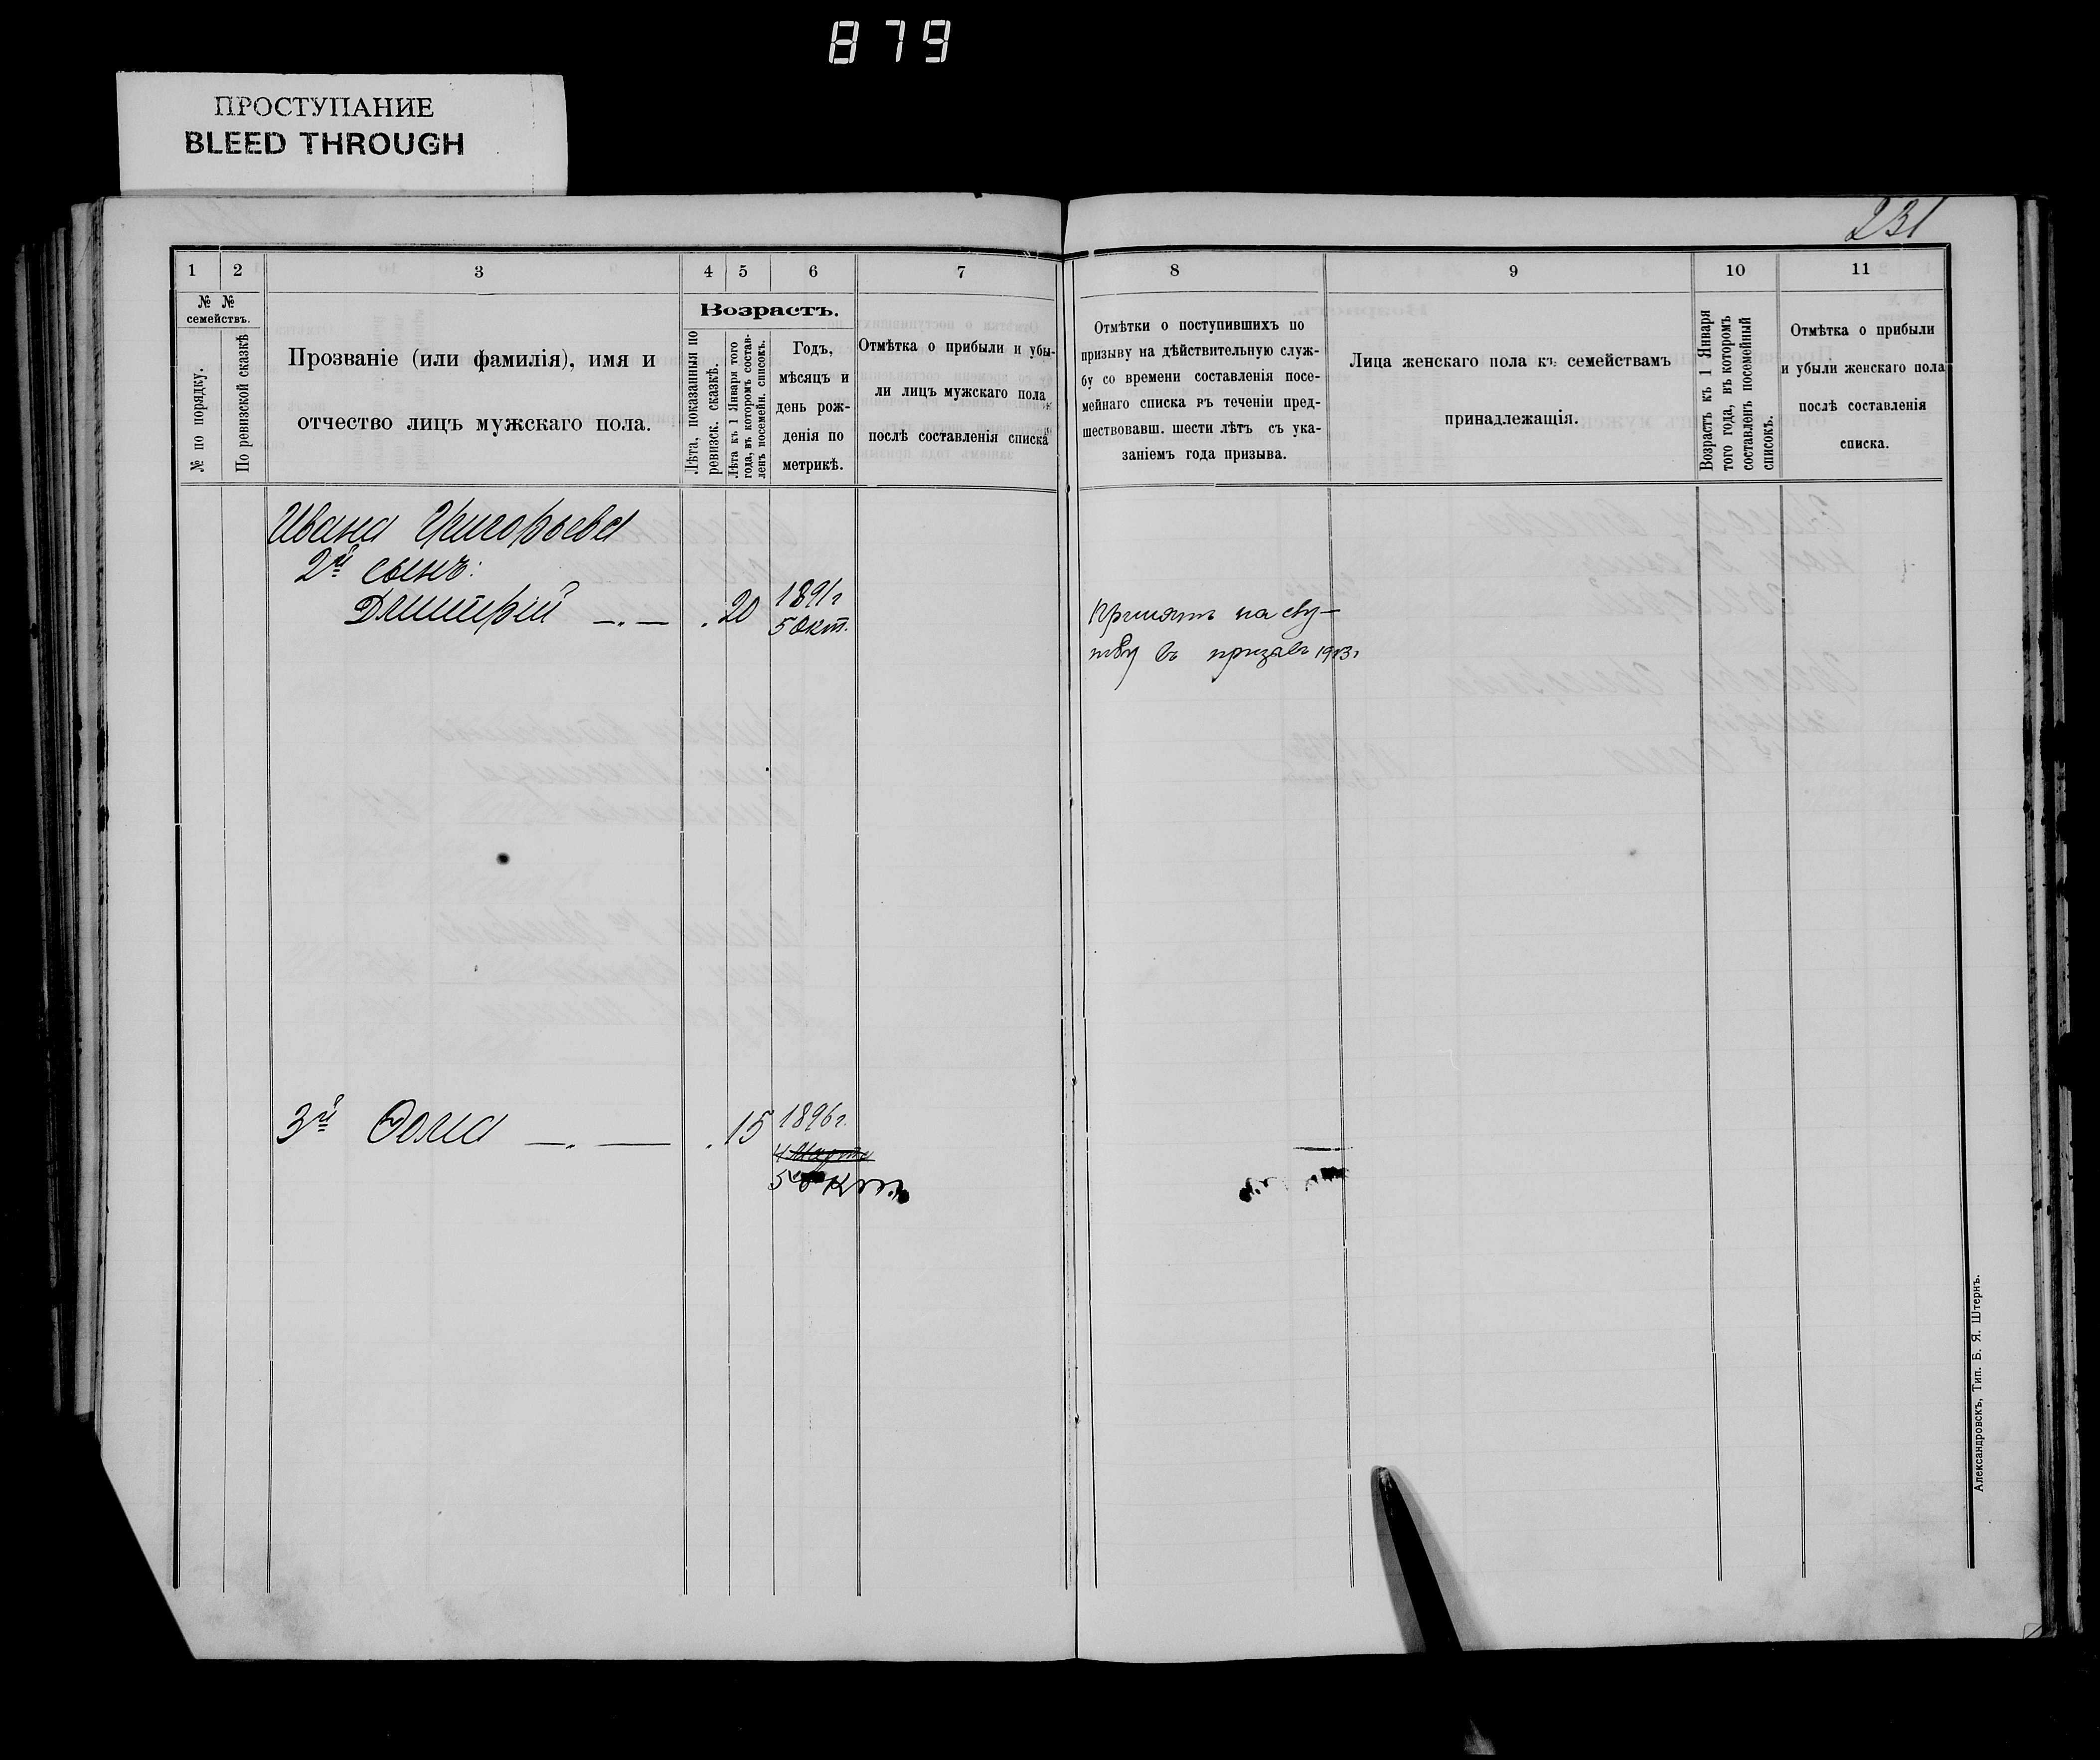 879
ПРОСТУПАНИЕ
BLEED THROUGH
231
1 2 3 4 5 6 7 8 9 10 11
№ № семействъ.
№ по порядку.
По ревизской сказкѣ
Прозваніе (или фамилія), имя и
отчество лицъ мужскаго пола.
Возрастъ.
Лѣта, показанныя по
ревизск. сказкѣ.
Лѣта къ 1 Января того
года, въ которомъ состав-
ленъ посемейн. списокъ.
Годъ,
мѣсяцъ и
день рож-
денія по
метрикѣ.
Отмѣтка о прибыли и убы-
ли лицъ мужскаго пола
послѣ составленія списка
Отмѣтки о поступившихъ по
призыву на дѣйствительную служ-
бу со времени составленія посе-
мейнаго списка въ теченіи пред-
шествовавш. шести лѣтъ съ ука-
заніемъ года призыва.
Лица женскаго пола къ семействамъ
принадлежащія.
Возрастъ къ 1 Января
того года, въ которомъ
составленъ посемейный
списокъ.
Отмѣтка о прибыли
и убыли женскаго пола
послѣ составленія
списка.
Ивана Григорьева
2й сынъ:
Дмитрій 20 1891 г
5 Окт.
Принятъ на слу-
жбу въ призывъ 1913 г
3й Ѳома 15 1896 г.
4 Марта
5 Окт.
Александровскъ, Тип. Б. Я. Штернъ.